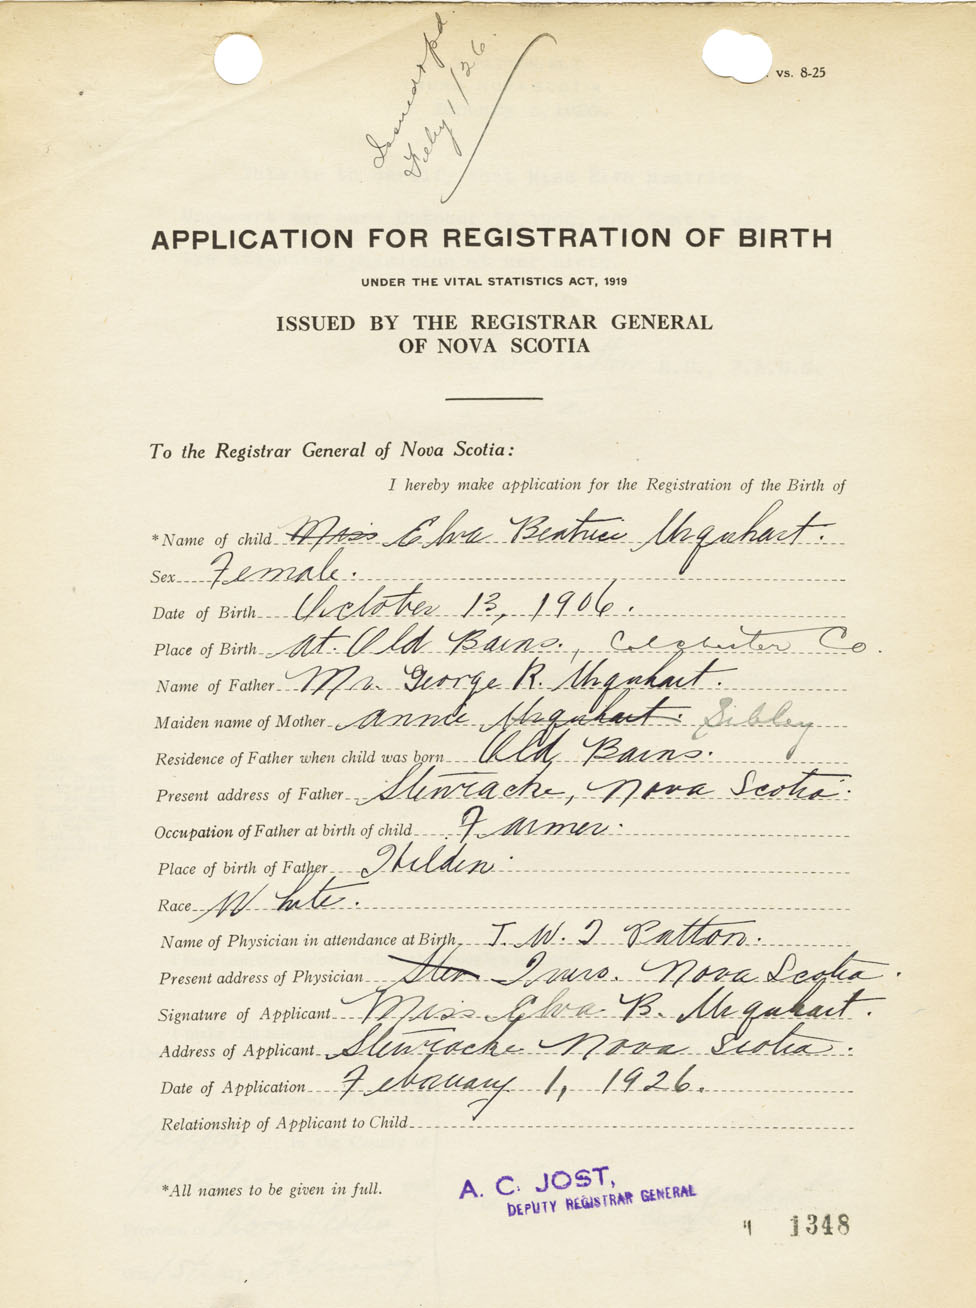 Issued & pd.
Feby 1/26.
vs. 8-25
APPLICATION FOR REGISTRATION OF BIRTH
UNDER THE VITAL STATISTICS ACT, 1919
ISSUED BY THE REGISTRAR GENERAL
OF NOVA SCOTIA
To the Registrar General of Nova Scotia:
I hereby make application for the Registration of the Birth of
*Name of child Miss Elva Beatrice Urquhart.
Sex Female.
Date of Birth October 13, 1906.
Place of Birth At. Old Barns., Colchester Co.
Name of Father Mr. George R. Urquhart.
Maiden name of Mother Annie Urquhart. Sibley
Residence of Father when child was born Old Barns.
Present address of Father Stewiacke, Nova Scotia.
Occupation of Father at birth of child Farmer.
Place of birth of Father Hilden.
Race White.
Name of Physician in attendance at Birth J. W. T Patton.
Present address of Physician Stew Truro. Nova Scotia.
Signature of Applicant Miss Elva B. Urquhart.
Address of Applicant Stewiacke Nova Scotia.
Date of Application February 1, 1926.
Relationship of Applicant to Child
*All names to be given in full.
A. C. JOST,
DEPUTY REGISTRAR GENERAL
1348